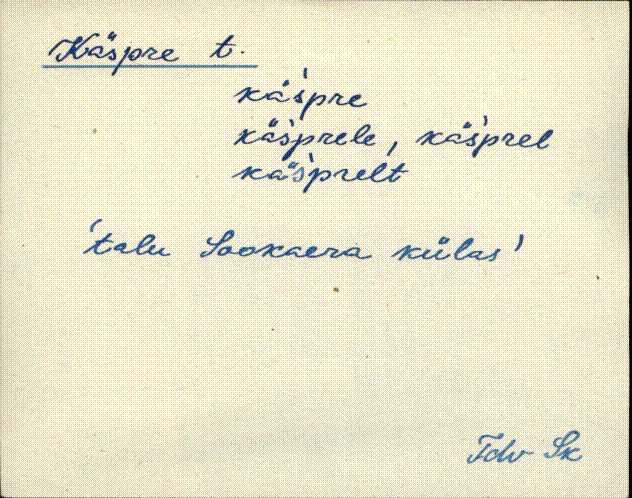 Käspre t.
käs̀pre
käs̀prele, käs̀prel
käs̀prelt
'talu Sookaera külas'
Sk